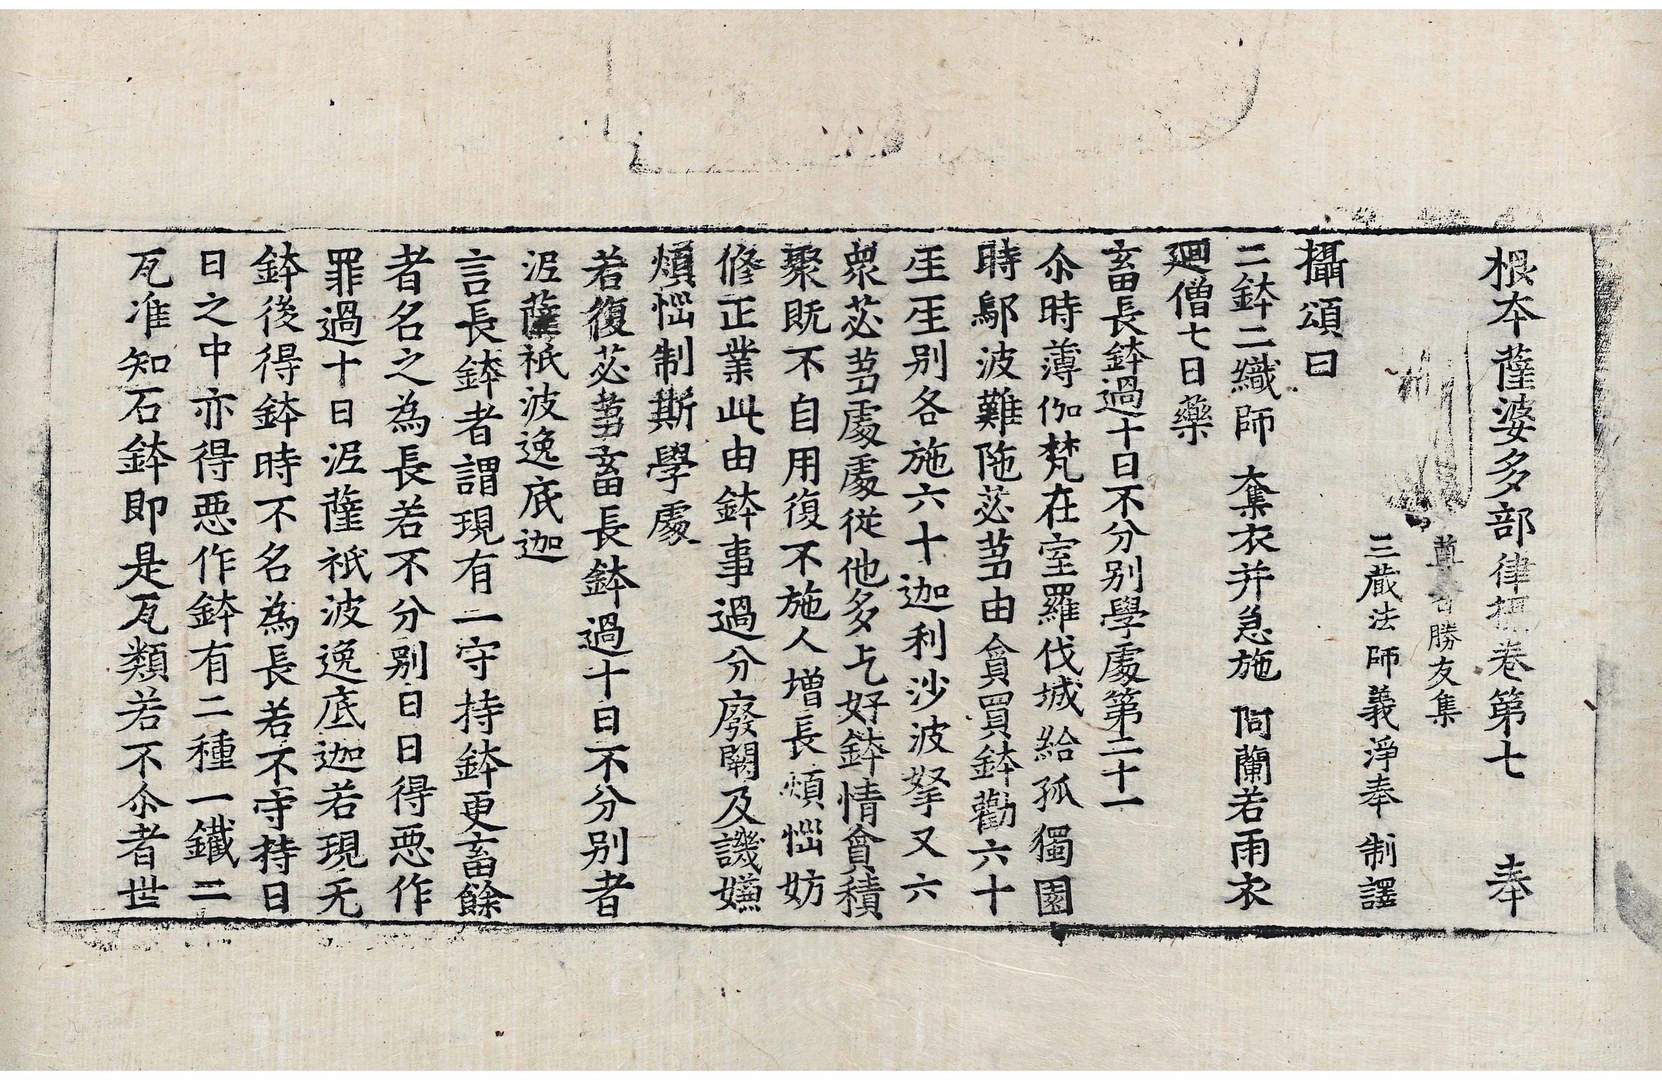 根本薩婆多部律攝卷第七 奉
尊者勝友集
三蔵法師義淨奉 制譯
攝頌曰
二鉢二織師 奪衣并急施 阿蘭若雨衣
廻僧七日藥
畜長鉢過十日不分別學處第二十一
尒時薄伽梵在室羅伐城給孤獨園
時鄔波難陁苾芻由貪買鉢勸六十
𤯔𤯔別各施六十迦利沙波拏又六
衆苾芻處處從他多乞好鉢情貪積
聚既不自用復不施人增長煩惱妨
修正業此由鉢事過分廢闕及譏嫌
煩惱制斯學處
若復苾芻畜長鉢過十日不分別者
泥薩祇波逸底迦
言長鉢者謂現有一守持鉢更畜餘
者名之為長若不分別日日得悪作
罪過十日泥薩祇波逸底迦若現无
鉢後得鉢時不名為長若不守持日
日之中亦得悪作鉢有二種一鐵二
瓦准知石鉢即是瓦類若不尒者世